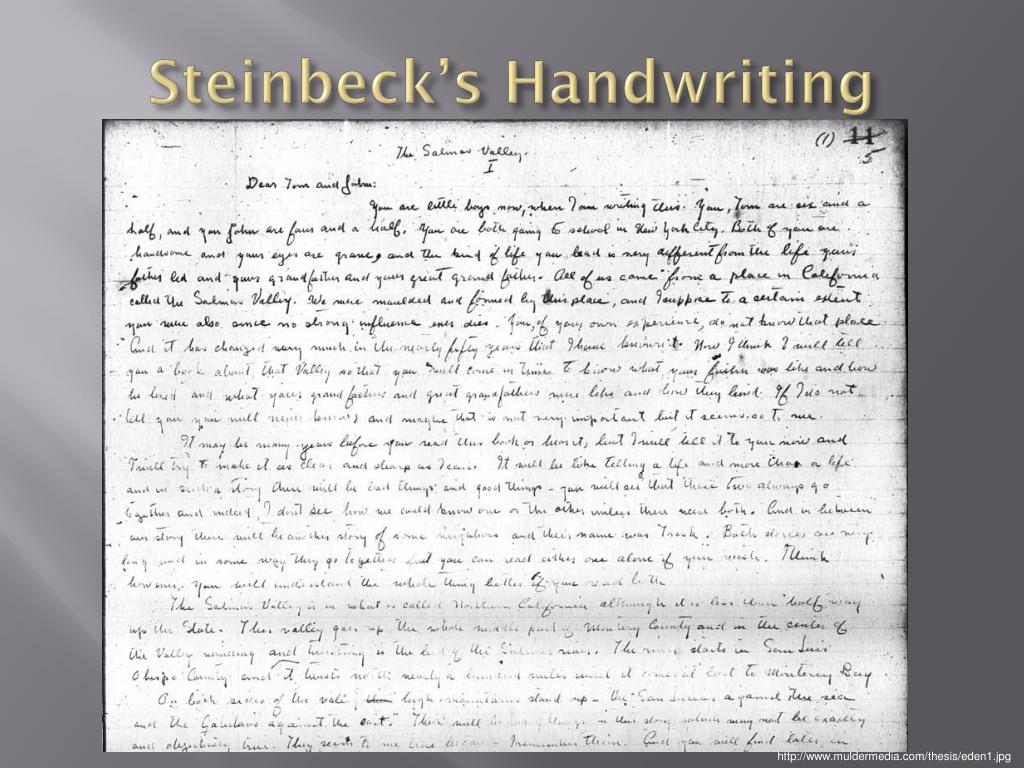 Steinbeck's Handwriting
(1) 11
5
The Salinas Valley.
I
Dear Tom and John:
You are little boys now, when I am writing this. You, Tom are six and a
half, and you John are four and a half. You are both going to school in New York City. Both of you are
handsome and your eyes are and the kind of life you lead is very different from the life your
father led and your grandfather and your great grand father. All of us came from a place in California
called the Salinas Valley. We were moulded and formed by this place, and I suppose to a certain extent
you were also since no strong influence ever dies. You, of your own experience, do not know that place
And it has changed very much in the nearly fifty years that I have known it. Now I think I will tell
you a book about that Valley so that you will come in time to know what your father was like and how
he lived and what your grandfathers and great grandfathers were like and how they lived. If I do not
tell you you will never know, and maybe that is not very important but it seems so to me.
It may be many years before you read this book or hear it, but I will tell it to you now and
I will try to make it as clear and sharp as I can. It will be like telling a life and more than a life
and in such a story there will be bad things and good things - you will see that these two always go
together and indeed, I dont see how we could know one or the other unless there were both. And in between
our story there will be another story of some neighbors and their name was Trask. Both stories are very
long and in some way they go together but you can read either one alone if you wish. I think
however, you will understand the whole thing better if you read both
The Salinas Valley is in what is called Northern California although it is less than half way
up the State. This valley goes up the whole middle part of Monterey County and in the center of
the Valley winding and twisting is the bed of the Salinas river. The river starts in San Luis
Obispo County and it twists north nearly a hundred miles until it comes out to Monterey Bay
On both sides of the valley high mountains stand up - the San Lucias against the sea
and the Gabilans against the east. There will be many things in this story which may not be exactly
and objectively true. They seem to me true because I remember them. And you will find later in
http://www.muldermedia.com/thesis/eden1.jpg